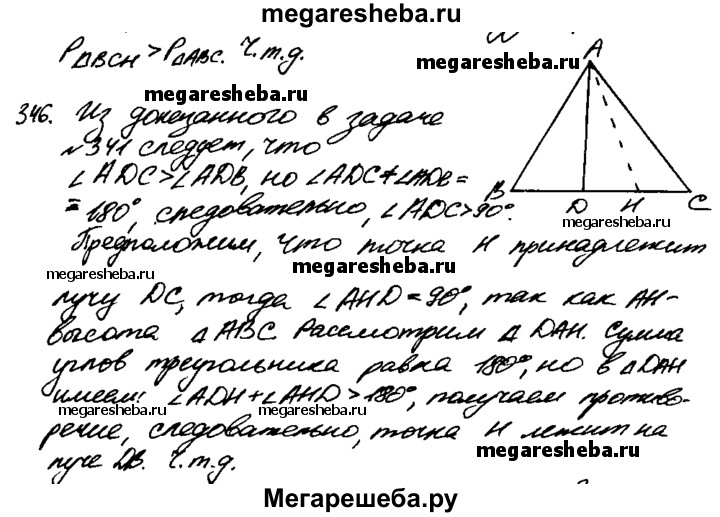 megaresheba.ru
P△BCH > P△ABC. Ч.т.д.
megaresheba.ru
346. Из доказанного в задаче
№341 следует, что
∠ADC>∠ADB, но ∠ADC+∠ADB=
=180°, следовательно, ∠ADC>90°.
A
megaresheba.ru
B D H C
megaresheba.ru
Предположим, что точка H принадлежит
megaresheba.ru
megaresheba.ru
megaresheba.ru
лучу DC, тогда ∠AHD=90°, так как AH-
высота △ABC. Рассмотрим △DAH. Сумма
углов треугольника равна 180°, но в △DAH
имеем: ∠ADH+∠AHD>180°, получаем противо-
megaresheba.ru
megaresheba.ru
речие, следовательно, точка H лежит на
луче DB. Ч.т.д.
megaresheba.ru
Мегарешеба.ру